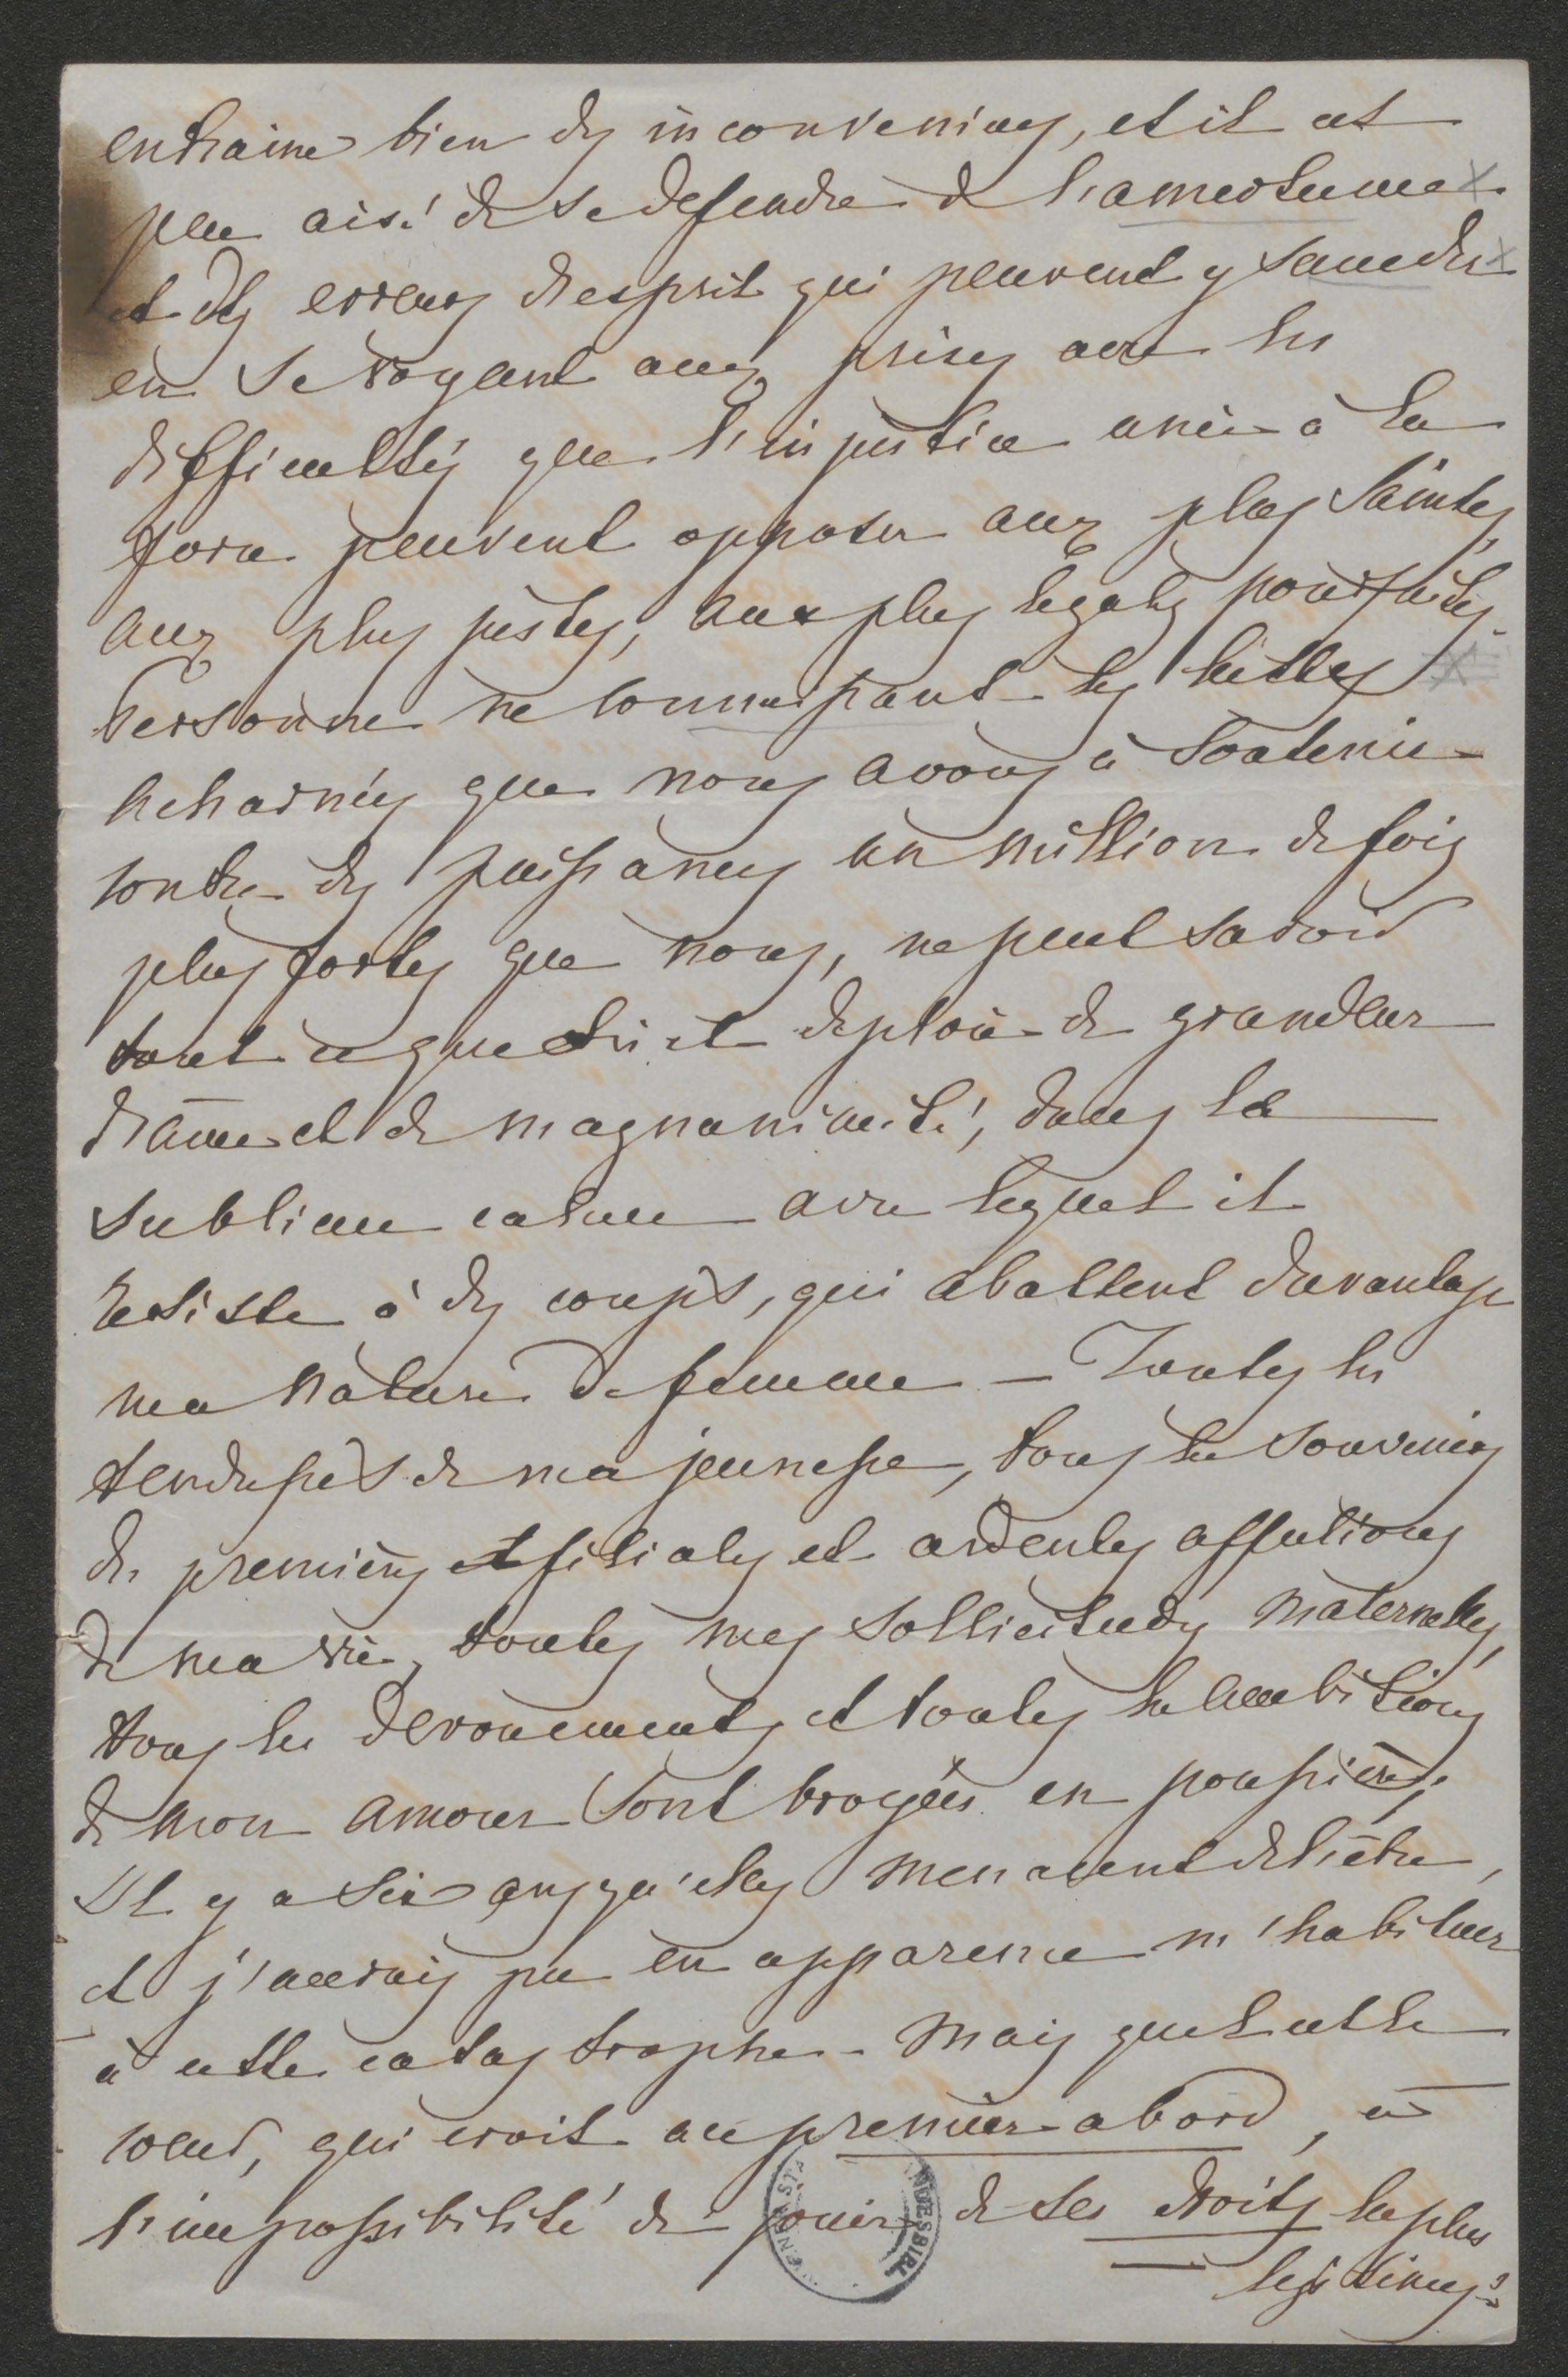 entraine bien des inconveniens, et il est
peu aisé de se defendre de l'amertume
et des erreurs d'esprit qui peuvent y
en se voyant aux prises avec les
difficultés que l'injustice unie à la
force peuvent opposer aux plus saintes,
aux plus justes, aux plus legales poursuites.
Personne ne connaissant les luttes
acharnées que nous avons à soutenir
contre des puissances un million de fois
plus fortes que nous, ne peut savoir
tout ce que déploie de grandeur
d'âme et de magnanimité, dans le
sublime calme avec lequel il
resiste à des coups, qui abattent davantage
ma nature de femme – Toutes les
tendresses de ma jeunesse, tous les souvenirs
des premières et filiales et ardentes affections
de ma vie, toutes mes sollicitudes maternelles,
tous les devouements et toutes les ambitions
de mon amour sont broyées en poussière;
Il y a six ans qu'elles menacent de l'être,
et j'aurais pu en apparence m'habituer
à cette catastrophe – Mais quel est le
cœur, qui croit au premier abord, à
l'impossibilité de jouir de ses droits les plus
legitimes?
WIENER STADT BIBL